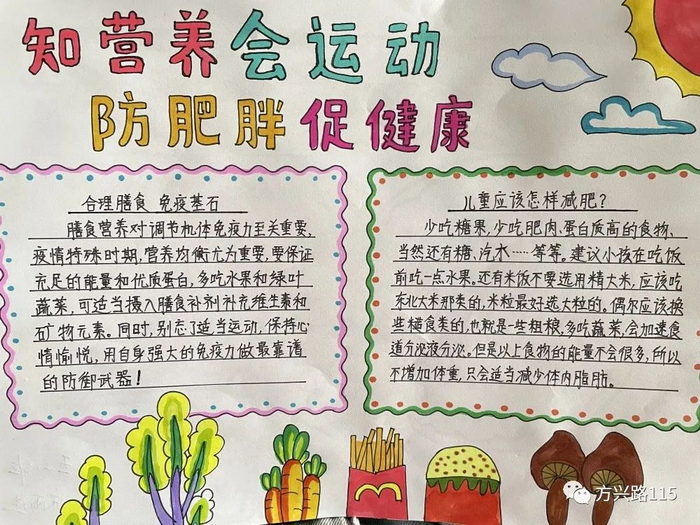 知营养会运动
防肥胖促健康
合理膳食 免疫基石
膳食营养对调节机体免疫力至关重要,
疫情特殊时期,营养均衡尤为重要,要保证
充足的能量和优质蛋白,多吃水果和绿叶
蔬菜,可适当摄入膳食补剂补充维生素和
矿物元素。同时,别忘了适当运动,保持心
情愉悦,用自身强大的免疫力做最靠谱
的防御武器!
儿童应该怎样减肥?
少吃糖果,少吃肥肉、蛋白质高的食物、
当然还有糖、汽水……等等。建议小孩在吃饭
前吃一点水果。还有米饭不要选用精大米,应该吃
东北大米那类的,米粒最好选大粒的。偶尔应该换
些粗食类的,也就是一些粗粮,多吃蔬菜,会加速食
道分泌液分泌。但是以上食物的能量不会很多,所以
不增加体重,只会适当减少体内脂肪。
方兴路115